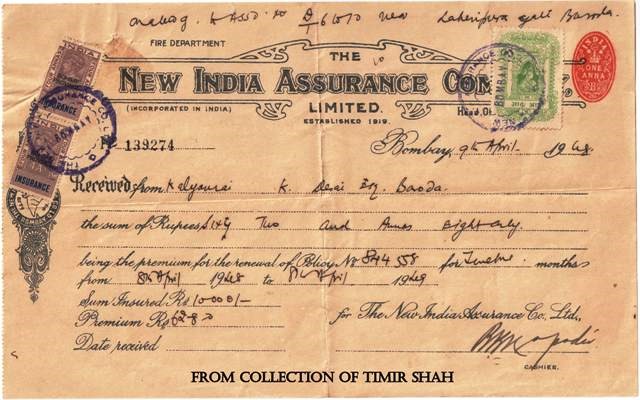 new Laheripura Baroda.
FIRE DEPARTMENT
THE
NEW INDIA ASSURANCE COM
LIMITED.
(INCORPORATED IN INDIA)
ESTABLISHED 1919.
INDIA
ONE
ANNA
BOMBAY
INSURANCE
139274
Bombay, 9th April 1948
Received from K. Desai Esq. Baroda.
the sum of Rupees Sixty Two and Annas Eight only
being the premium for the renewal of Policy No 894558 for Twelve months
from 8th April 1948 to April 1949
Sum Insured Rs 10000/-
Premium Rs 62-8-0
for The New India Assurance Co. Ltd.,
Date received
CASHIER.
FROM COLLECTION OF TIMIR SHAH